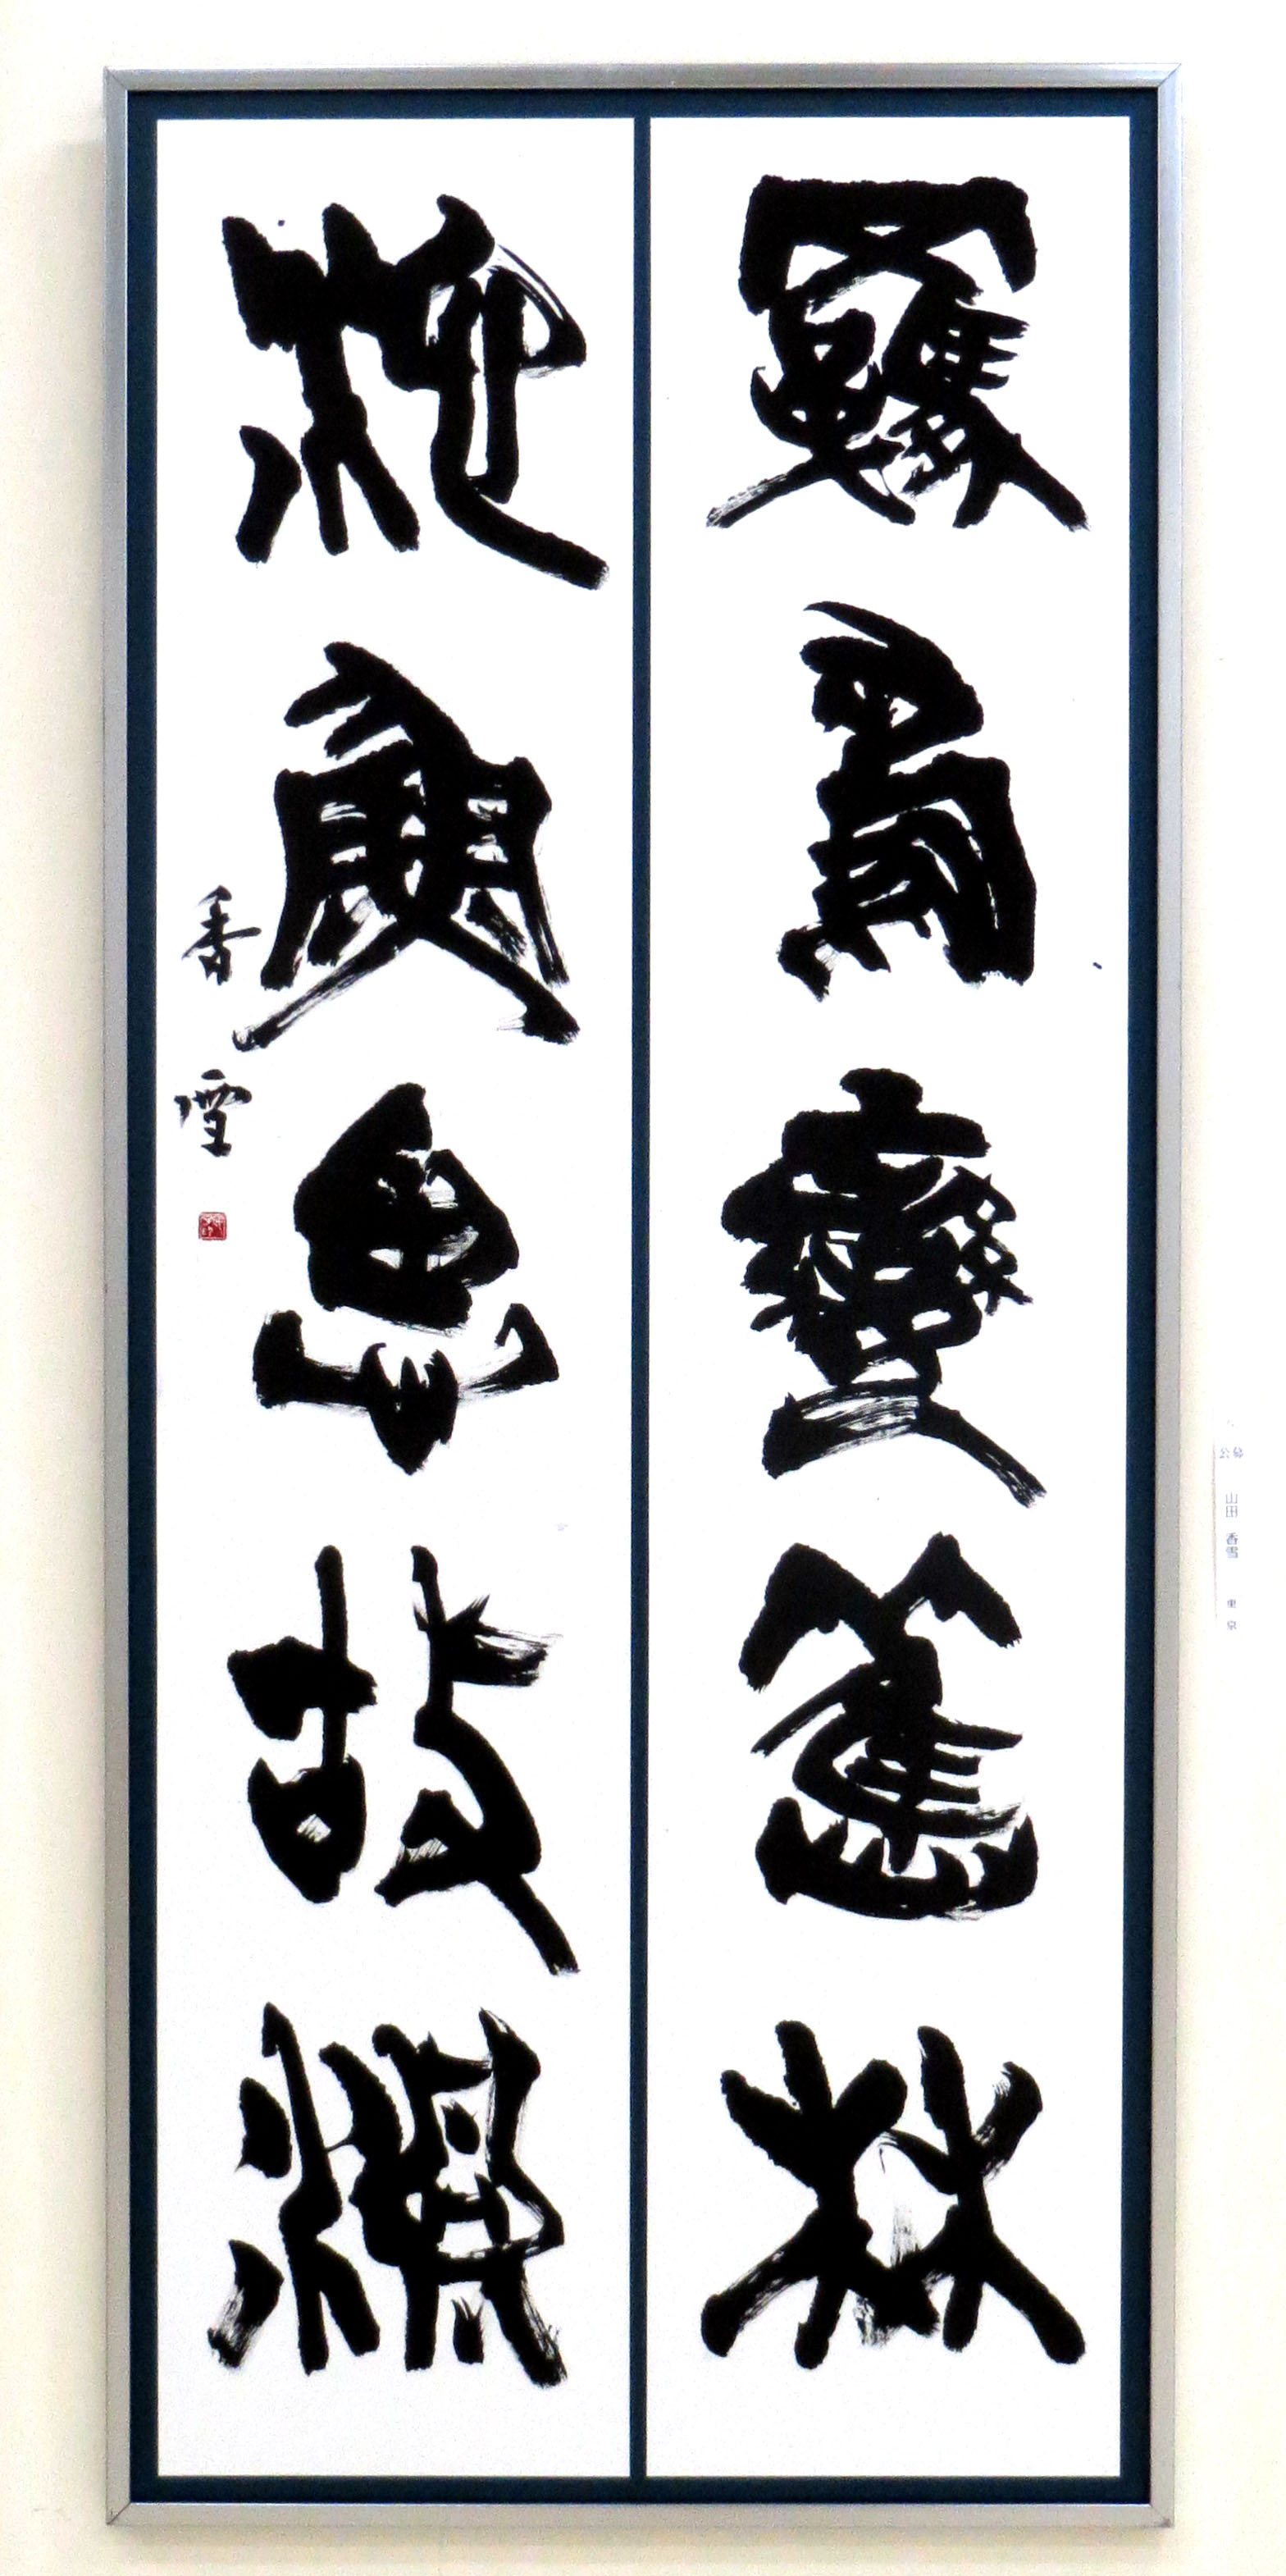 羈鳥戀舊林
池魚思故淵
香雪
山田 香雪 東京